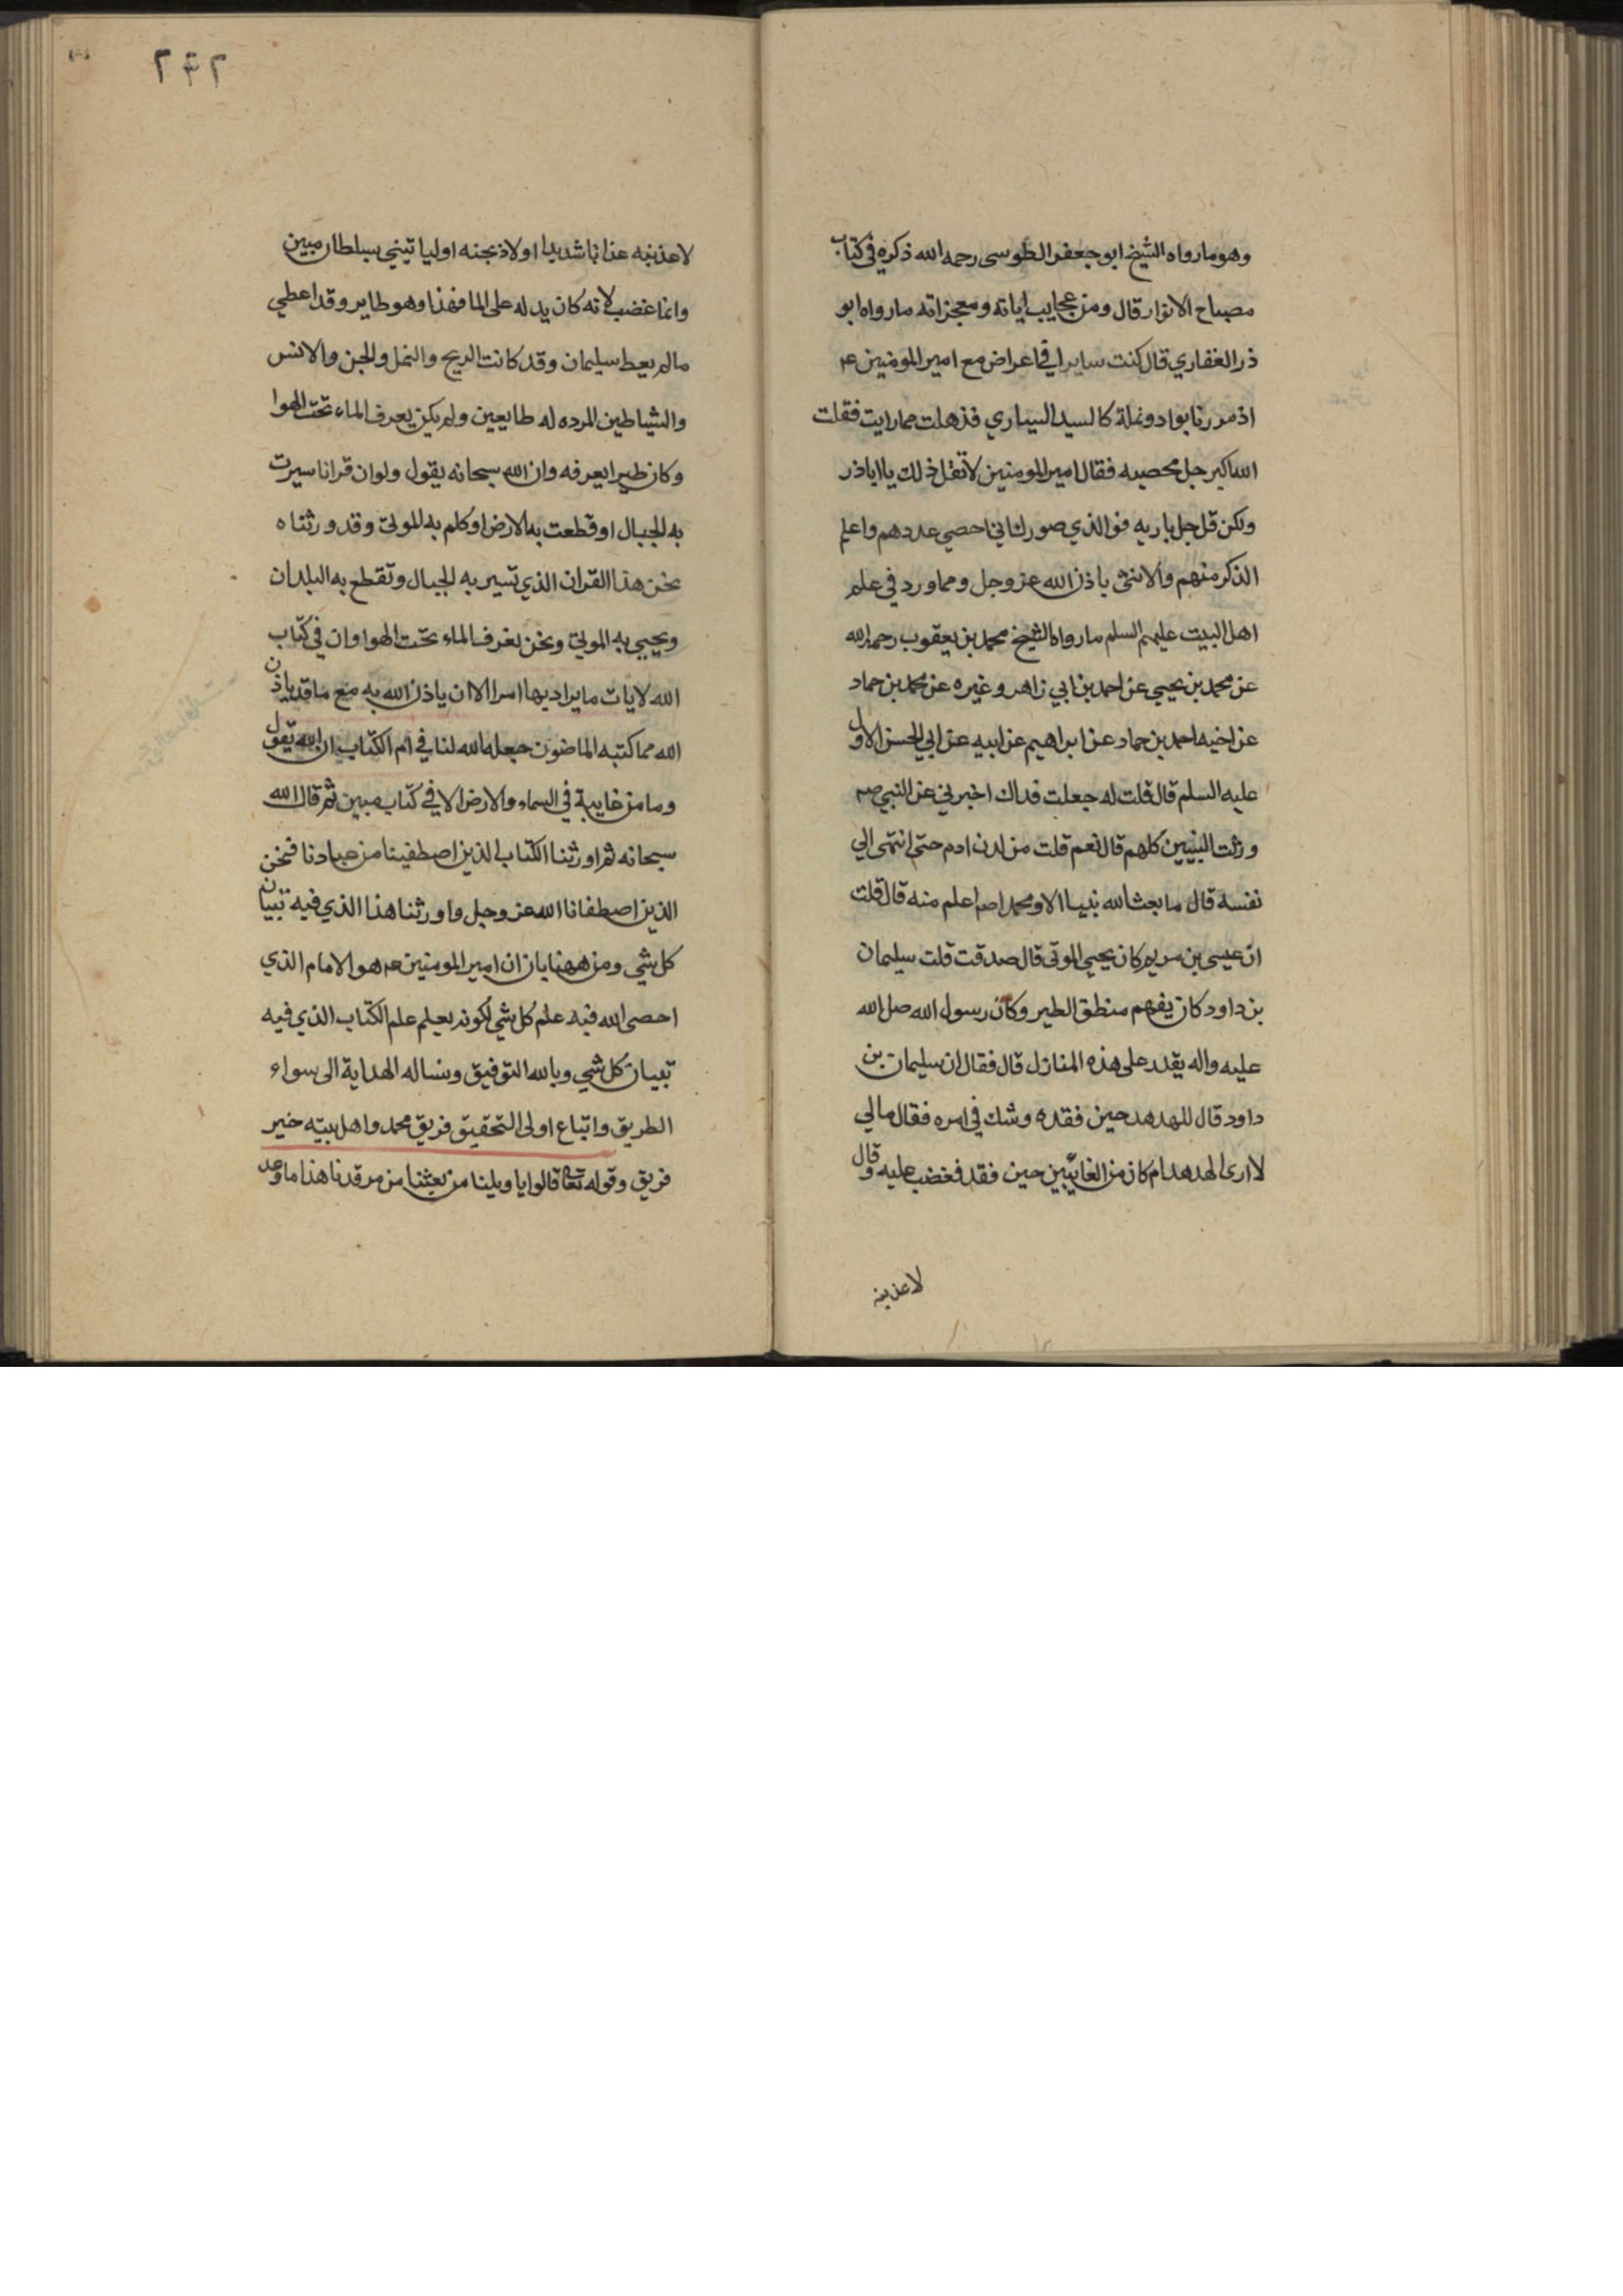 وهو مارواه الشيخ ابو جعفر الطوسى رحمه الله ذكره في كتاب
مصباح الانوار قال ومن عجايب اياته ومعجزاته مارواه ابو
ذر الغفاري قال كنت سايرا في اعراض مع امير المومنين ع
اذ مررنا بواد ونملة كالسيد السياري فذهلت مما رايت فقلت
الله اكبر جل محصيه فقال امير المومنين لا تقل ذلك يا اباذر
ولكن قل جل باريه فوالذي صورك اني احصي عددهم واعلم
الذكر منهم والانثى باذن الله عز وجل ومما ورد في علم
اهل البيت عليهم السلم مارواه الشيخ محمد بن يعقوب رحمه الله
عن محمد بن يحيى عن احمد بن ابي زاهر وغيره عن محمد بن حماد
عن اخيه احمد بن حماد عن ابراهيم عن ابيه عن ابي الحسن الاول
عليه السلم قال قلت له جعلت فداك اخبرني عن النبي صم
ورثت النبيين كلهم قال نعم قلت من لدن ادم حتى انتهى الي
نفسه قال ما بعث الله نبيا الا ومحمد اصم اعلم منه قال قلت
ان عيسى بن مريم كان يحيي الموتى قال صدقت قلت سليمان
بن داود كان يفهم منطق الطير وكان رسول الله صل الله
عليه واله يقدر على هذه المنازل قال فقال ان سليمان بن
داود قال للهدهد حين فقده وشك في امره فقال مالي
لا ارى الهدهد ام كان من الغائبين حين فقد فغضب عليه وقال
لاعذبنه
٢٤٢
لاعذبنه عذابا شديدا او لاذبحنه او لياتيني بسلطان مبين
وانما غضب لانه كان يدله على الما فهذا وهو طاير وقد اعطي
مالم يعط سليمان وقد كانت الريح والنمل والجن والانس
والشياطين المرده له طايعين ولم يكن يعرف الماء تحت الهوا
وكان طير ايعرفه وان الله سبحانه يقول ولو ان قرانا سيرت
به الجبال او قطعت به الارض او كلم به الموتى وقد ورثناه
نحن هذا القران الذي تسير به الجبال وتقطع به البلدان
ويحيي به الموتى ونحن نعرف الماء تحت الهوا وان في كتاب
الله لايات مايراد بها امرا الا ان ياذن الله به مع ماقد ياذن
الله مما كتبه الماضون جعله الله لنا في ام الكتاب ان الله يقول
وما من غايبة في السماء والارض الا في كتاب مبين ثم قال الله
سبحانه ثم اورثنا الكتاب الذين اصطفينا من عبادنا فنحن
الذين اصطفانا الله عز وجل واورثنا هذا الذي فيه تبيان
كل شي ومن ههنا بان ان امير المومنين ع هو الامام الذي
احصى الله فيه علم كل شي لكونه يعلم علم الكتاب الذي فيه
تبيان كل شي وبالله التوفيق ونساله الهداية الى سواء
الطريق واتباع اولى التحقيق فريق محمد واهل بيته خير
فريق وقوله تعا قالوا يا ويلنا من بعثنا من مرقدنا هذا ما وعد